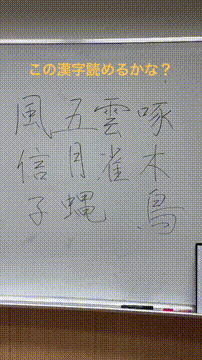 この漢字読めるかな？
啄木鳥
雲雀
五月蝿
風信子